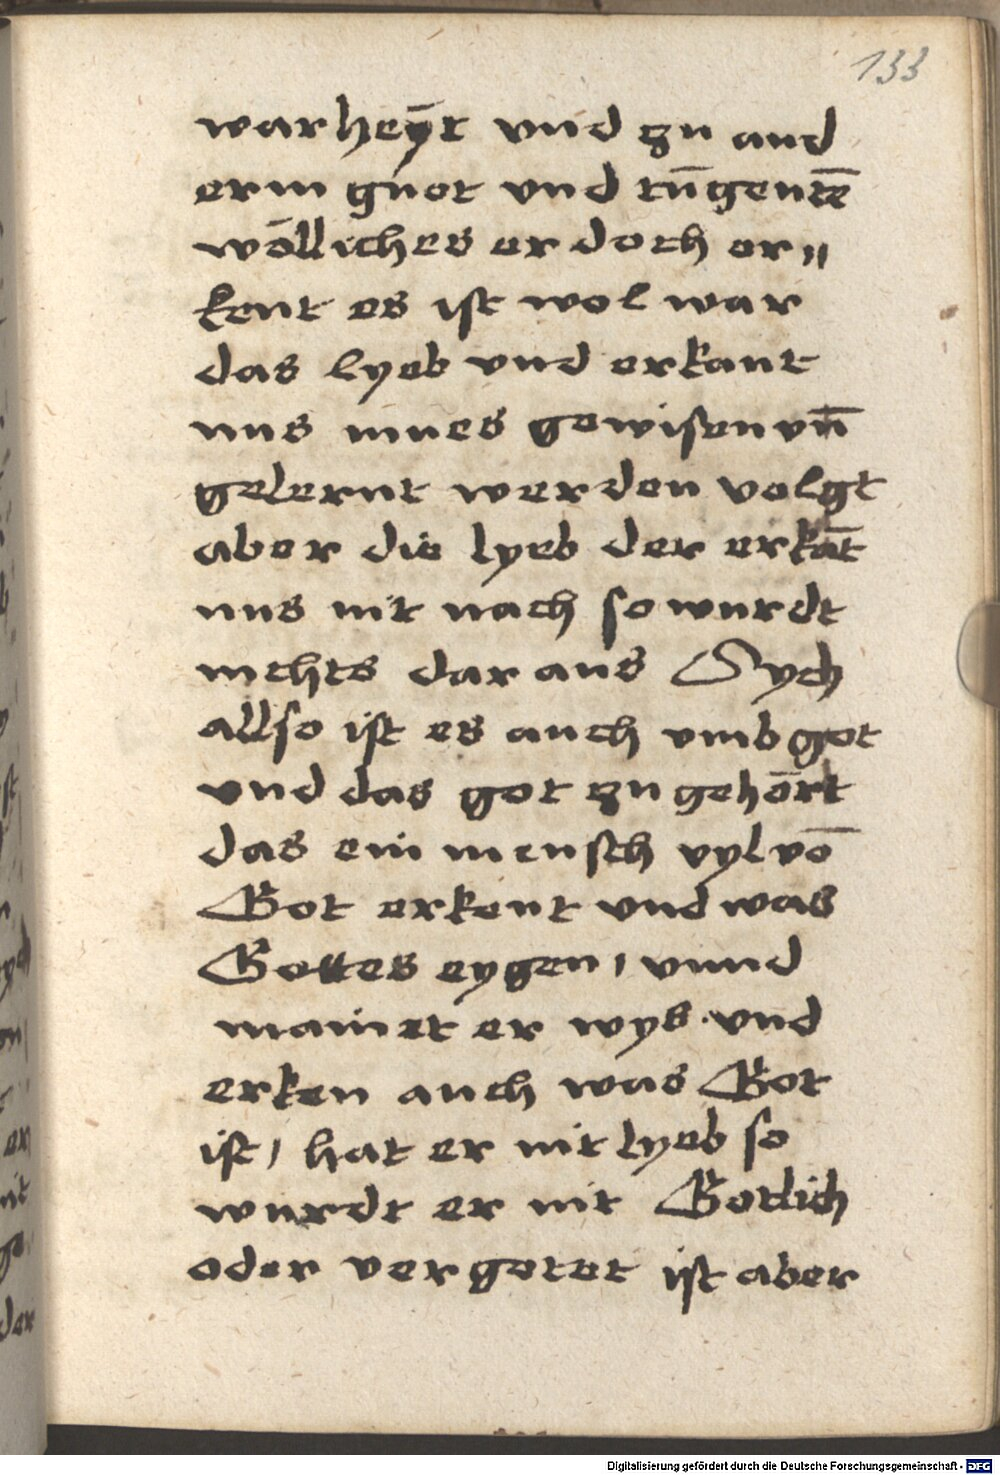 133
warheÿt vnd zu and
erm guot vnd tūgentē
wölliches er doch er〃
kent es ist wol war
das lyeb vnd erkant
nus mues gewisen vn̄
gelernt werden volgt
aber die lyeb der erkāt
nus nit nach so wurdt
nichts dar aus Sych
allso ist es auch vmb got
vnd das got zu gehört
das ein mensch vyl vō
Got erkent vnd was
Gottes eygen, vnnd
mainet er wys. vnd
erken auch was Got
ist, hat er nit lyeb so
wurdt er nit Gotlich
oder vergotet ist aber
Digitalisierung gefördert durch die Deutsche Forschungsgemeinschaft - DFG